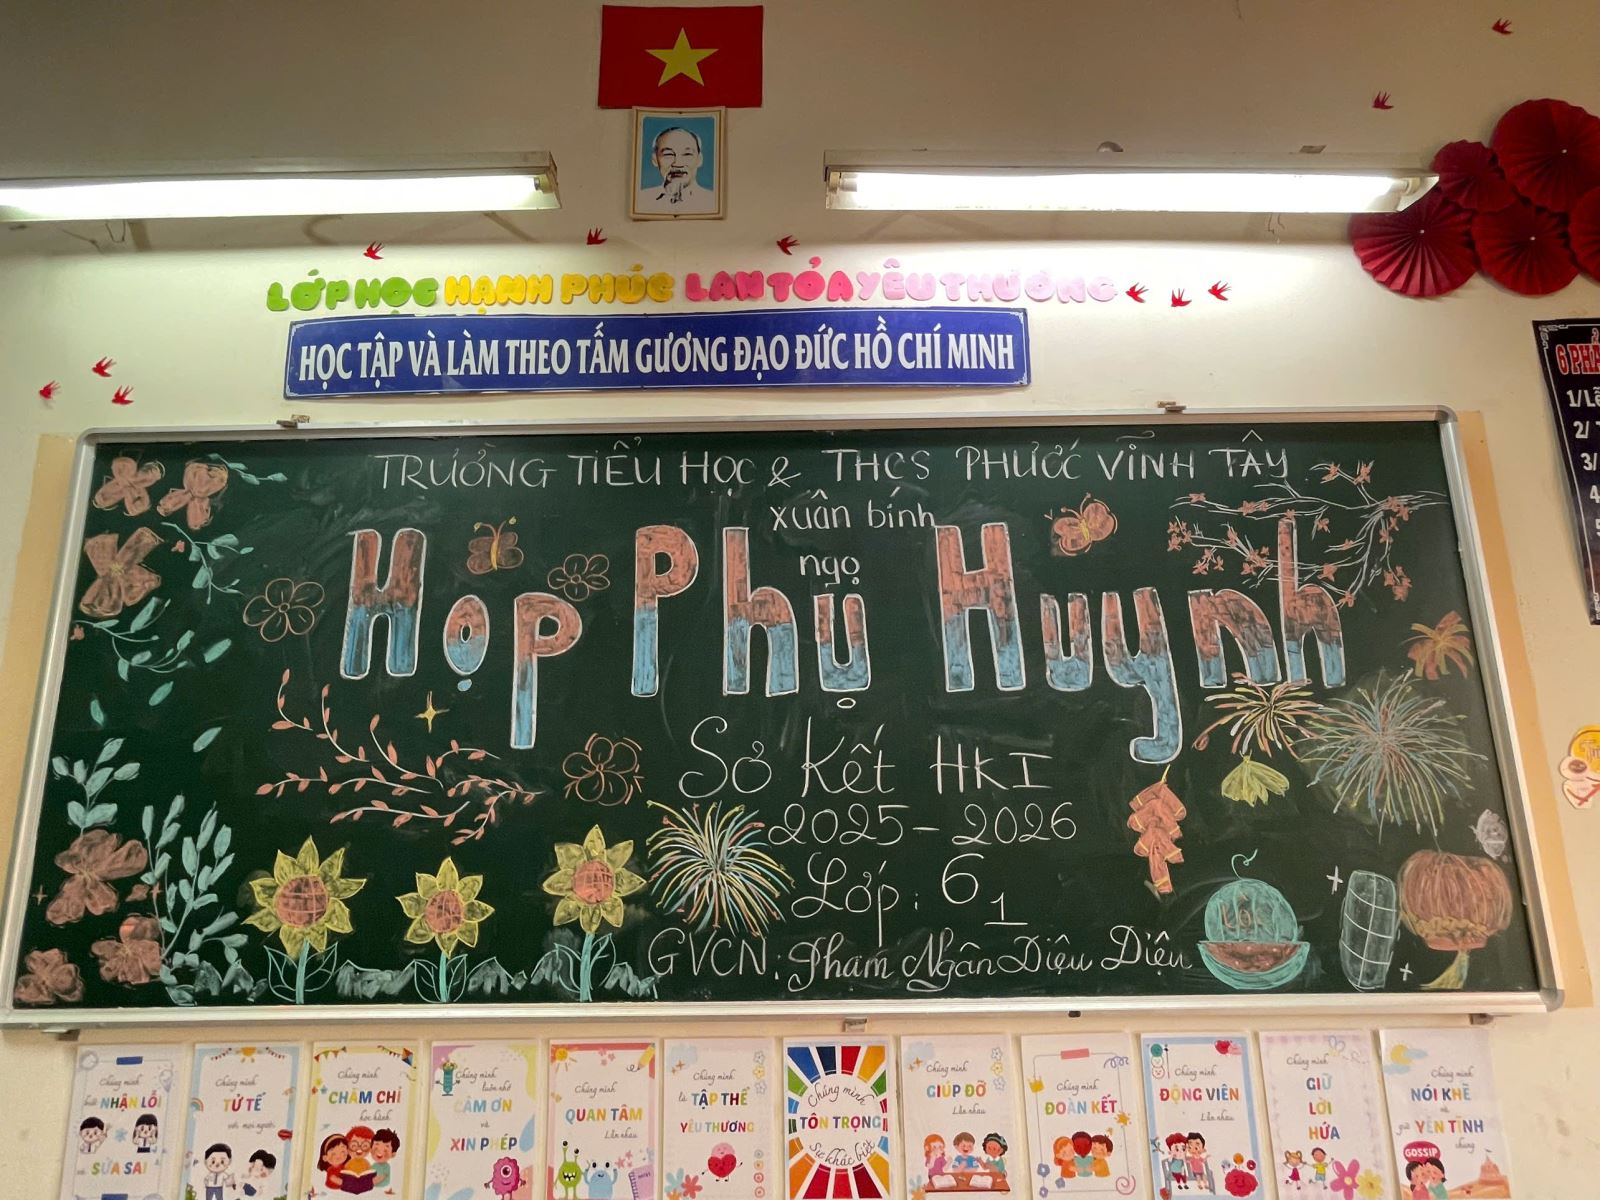 LỚP HỌC HẠNH PHÚC LAN TỎA YÊU THƯƠNG
HỌC TẬP VÀ LÀM THEO TẤM GƯƠNG ĐẠO ĐỨC HỒ CHÍ MINH
6 PHẨ
1/Lễ
2/
3/
4
5
TRƯỜNG TIỂU HỌC & THCS PHƯỚC VĨNH TÂY
xuân bính
ngọ
Họp Phụ Huynh
Sơ Kết HKI
2025 - 2026
Lớp: 6 1
GVCN: Phạm Ngân Diệu Diệu
Chúng mình
biết NHẬN LỖI
và SỬA SAI
Chúng mình
TỬ TẾ
với mọi người
Chúng mình
CHĂM CHỈ
học hành
Chúng mình
luôn nhớ
CẢM ƠN
và
XIN PHÉP
Chúng mình
QUAN TÂM
Lẫn nhau
Chúng mình
là TẬP THỂ
YÊU THƯƠNG
Chúng mình
TÔN TRỌNG
Sự khác biệt
Chúng mình
GIÚP ĐỠ
Lẫn nhau
Chúng mình
ĐOÀN KẾT
Chúng mình
ĐỘNG VIÊN
Lẫn nhau
Chúng mình
GIỮ
LỜI
HỨA
Chúng mình
NÓI KHẼ
và
giữ YÊN TĨNH
chung
GOSSIP